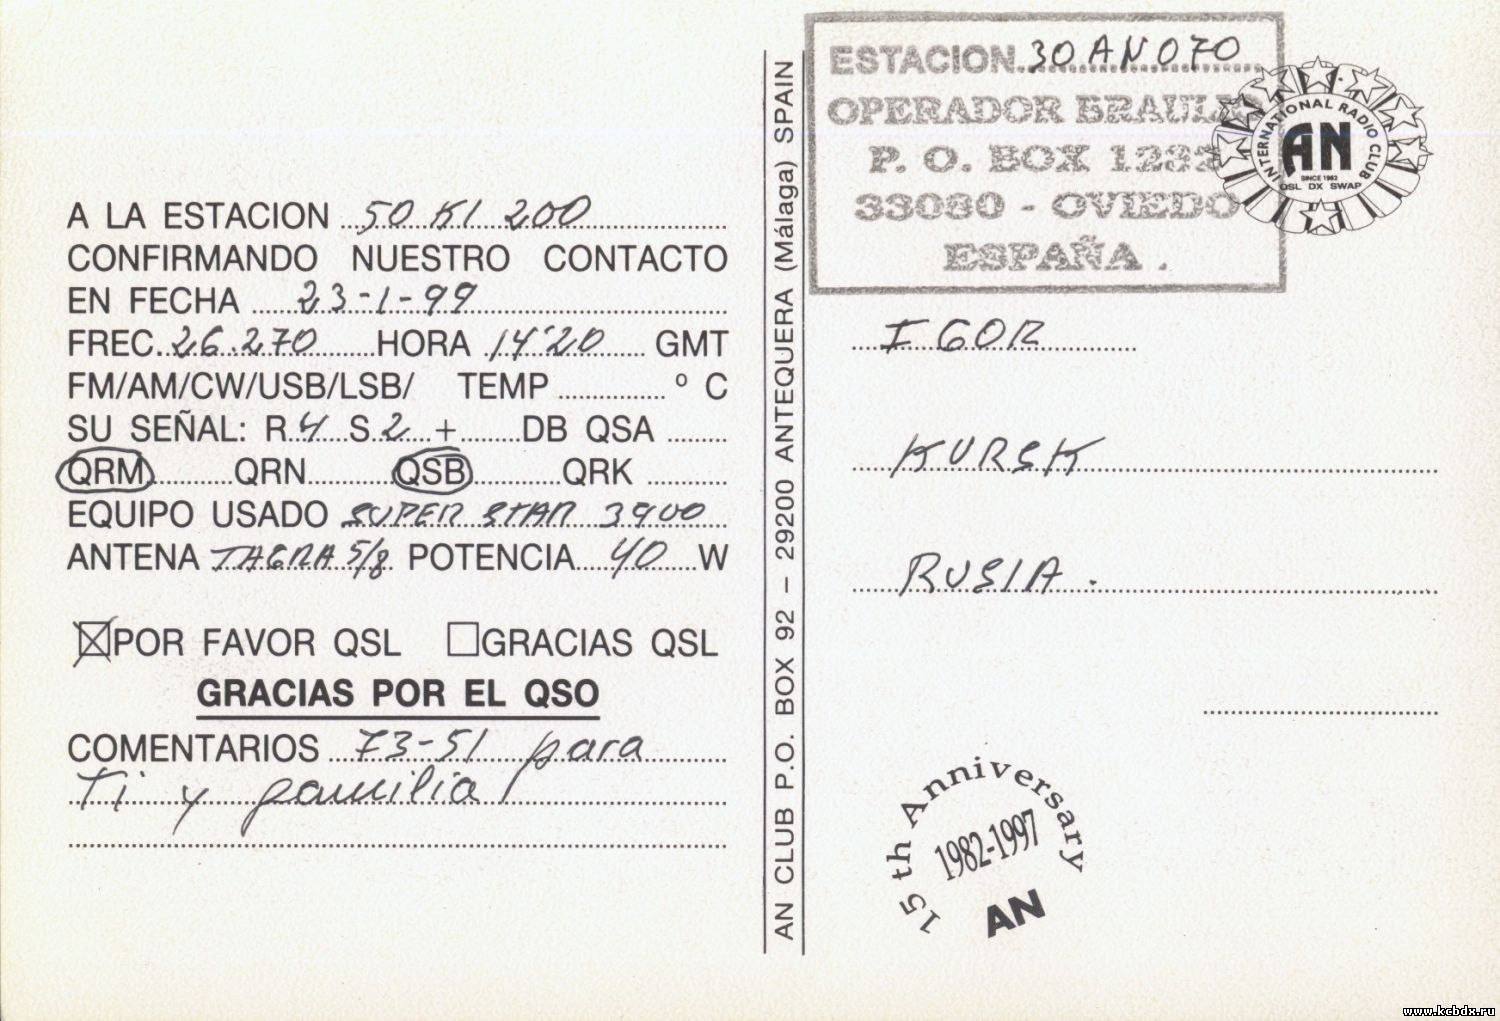 A LA ESTACION 50 KI 200
CONFIRMANDO NUESTRO CONTACTO
EN FECHA 23-1-99
FREC. 26.270 HORA 14'20 GMT
FM/AM/CW/USB/LSB/ TEMP º C
SU SEÑAL: R 4 S 2 + DB QSA
QRM QRN QSB QRK
EQUIPO USADO SUPER STAR 3900
ANTENA TAGRA 5/8 POTENCIA 40 W
POR FAVOR QSL GRACIAS QSL
GRACIAS POR EL QSO
COMENTARIOS 73-51 para
Ti y familia
AN CLUB P.O. BOX 92 – 29200 ANTEQUERA (Málaga) SPAIN
ESTACION 30 AN 070
OPERADOR BRAULIO
P. O. BOX 1233
33080 - OVIEDO
ESPAÑA .
INTERNATIONAL RADIO CLUB
AN
SINCE 1982
QSL DX SWAP
IGOR
KURSK
RUSIA .
15th Anniversary
1982-1997
AN
www.kcbdx.ru